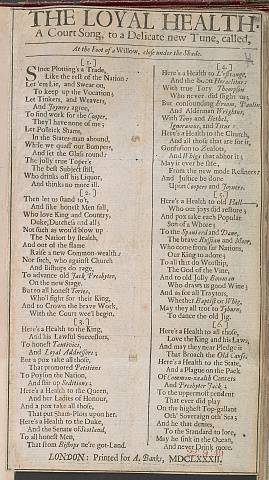 THE LOYAL HEALTH.
A Court Song, to a Delicate new Tune, called,
At the Foot of a Willow, close under the Shade.
[1.]
Since Plotting's a Trade,
Like the rest of the Nation:
Let 'em Lie, and Swear on,
To keep up the Vocation;
Let Tinkers, and Weavers,
And Joyners agree,
To find work for the Cooper,
They'l have none of me;
Let Politick Shams,
In the States-man abound,
While we quaff our Bumpers,
And set the Glass round:
The jolly true Toper's
The best Subject still,
Who drinks off his Liquor,
And thinks no more ill.
[2.]
Then let us stand to't,
And like honest Men fall,
Who love King and Country,
Duke, Dutchess and all;
Not such as would blow up
The Nation by stealth,
And out of the flame
Raise a new Common-wealth:
Nor such, who against Church
And Bishops do rage,
To advance old Jack Presbyter,
On the new Stage.
But to all honest Tories,
Who'l fight for their King,
And to Crown the brave Work,
With the Court wee'l begin.
[3.]
Here's a Health to the King,
And his Lawful Successors,
To honest Tantivies,
And Loyal Addressors;
But a pox take all those,
That promoted Petitions
To Poyson the Nation,
And stir up Seditions.
Here's a Health to the Queen,
And her Ladies of Honour,
And a pox take all those,
That put Sham-Plots upon her.
Here's a Health to the Duke,
And the Senate of Scotland,
To all honest Men,
That from Bishops ne're got-Land.
[4.]
Here's a Health to L'Estrange,
And the Heraclitus;
With true Tory Thompson
Who never did slight us;
But confounding Froom,
And Alderman Wrightus,
With Tony and
Ignoramus, and Titus:
Here's a Health to the Church,
And all those that are for it,
Confusion to Zealots,
And Whigs that abhor it;
May it ever be safe,
From the new mode Refiners;
And Justice be done
Upon Coopers and Joyners.
[5.]
Here's a Health to old
Who our joys did restore;
And pox take each Popular
Son of a Whore;
To the Spaniard and Dane,
The brave Russian and Moor,
Who come from far Nations,
Our King to adore;
To all that do Worship,
The God of the Vine,
And to old Jolly
Who draws us good Wine;
And as for all Traytors,
Whether Baptist or Whig,
May they all trot to Tyburn,
To dance the old Jig.
[6.]
Here's a Health to all those,
Love the King and his Laws,
And may they ne're Pledge it
That Broach the Old Cause.
Here's a Health to the State,
And a Plague on the Pack
Of Common-wealth Canters
And Presbyter Jack;
To the uppermost pendent
That ever did play
On the highest Top-gallant
Oth' Soveraign oth' Sea;
And he that denies,
To the Standard to lore,
May he sink in the Ocean,
And never Drink more.
LONDON: Printed for A. Banks, MDCLXXXII.